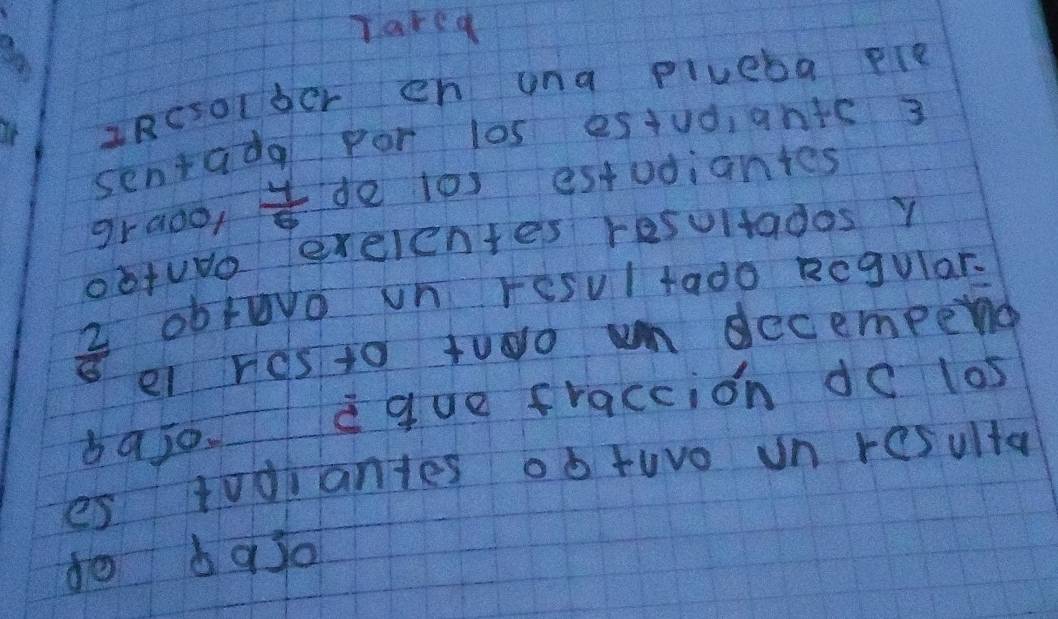 Tarea
IResolber en una plueba ple
sentada por los estudiante 3
grado, 4/8 de los estudiantes
obtuvo exelentes resultados y
2/8 obtuvo un resultado Regular.
el resto tuvo un decempeño
bajo. ¿ que fracción de los
es tudiantes obtuvo un resulta
do bajo